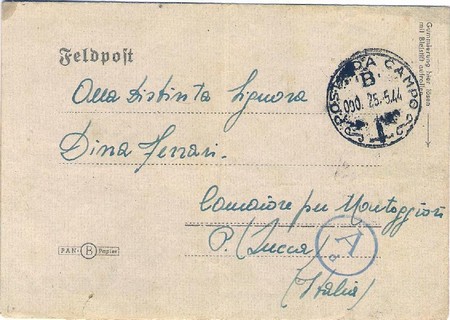 Feldpost
Alla distinta Signora
Dina Ferrari.
Camaiore per Monteggiori
P. (Lucca)
(Italia)
POSTA DA CAMPO
B
25.5.44
PAN- B Papier
Gummierung hier lösen
mit Bleistift aufrollen
A